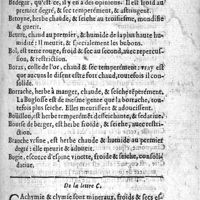 Bedegar, qu'est ce, il y en a des opinions. Il est froid au
premier degré, & sec temperément, & astringent.
Betoyne, herbe chaude, & seiche au troisiesme, mondifie
& guerit.
Beurre, chaud au premier, & humide de la plus haute hu-
midité: Il meurit, & specialement les bubons.
Bol, est terre rouge, froid & sec au second, avec repercus-
sion, & restriction.
Borax, colle de l'or, chaud & sec temperément: vray est
que aucun le disent estre fort chaud, toutesfois il conso-
lide.
Borrache, herbe à manger, chaude, & seiche temperément.
La Buglosse est de mesme genre que la borrache, tou-
tesfois plus seiche. Elles meurissent & adoucissent.
Bouillon, est herbe temperément desseichante, & sedative.
Bourse de berger, est herbe froide, & seiche, avec consoli-
dation.
Branche ursine, est herbe chaude & humide au premier
degré: elle meurit & adoucit.
Bugie, escorce d'espine vinette, froide & seiche, consoli-
dative.
De la lettre C.
CAchymie & clymie sont mineraux, froids & secs es-